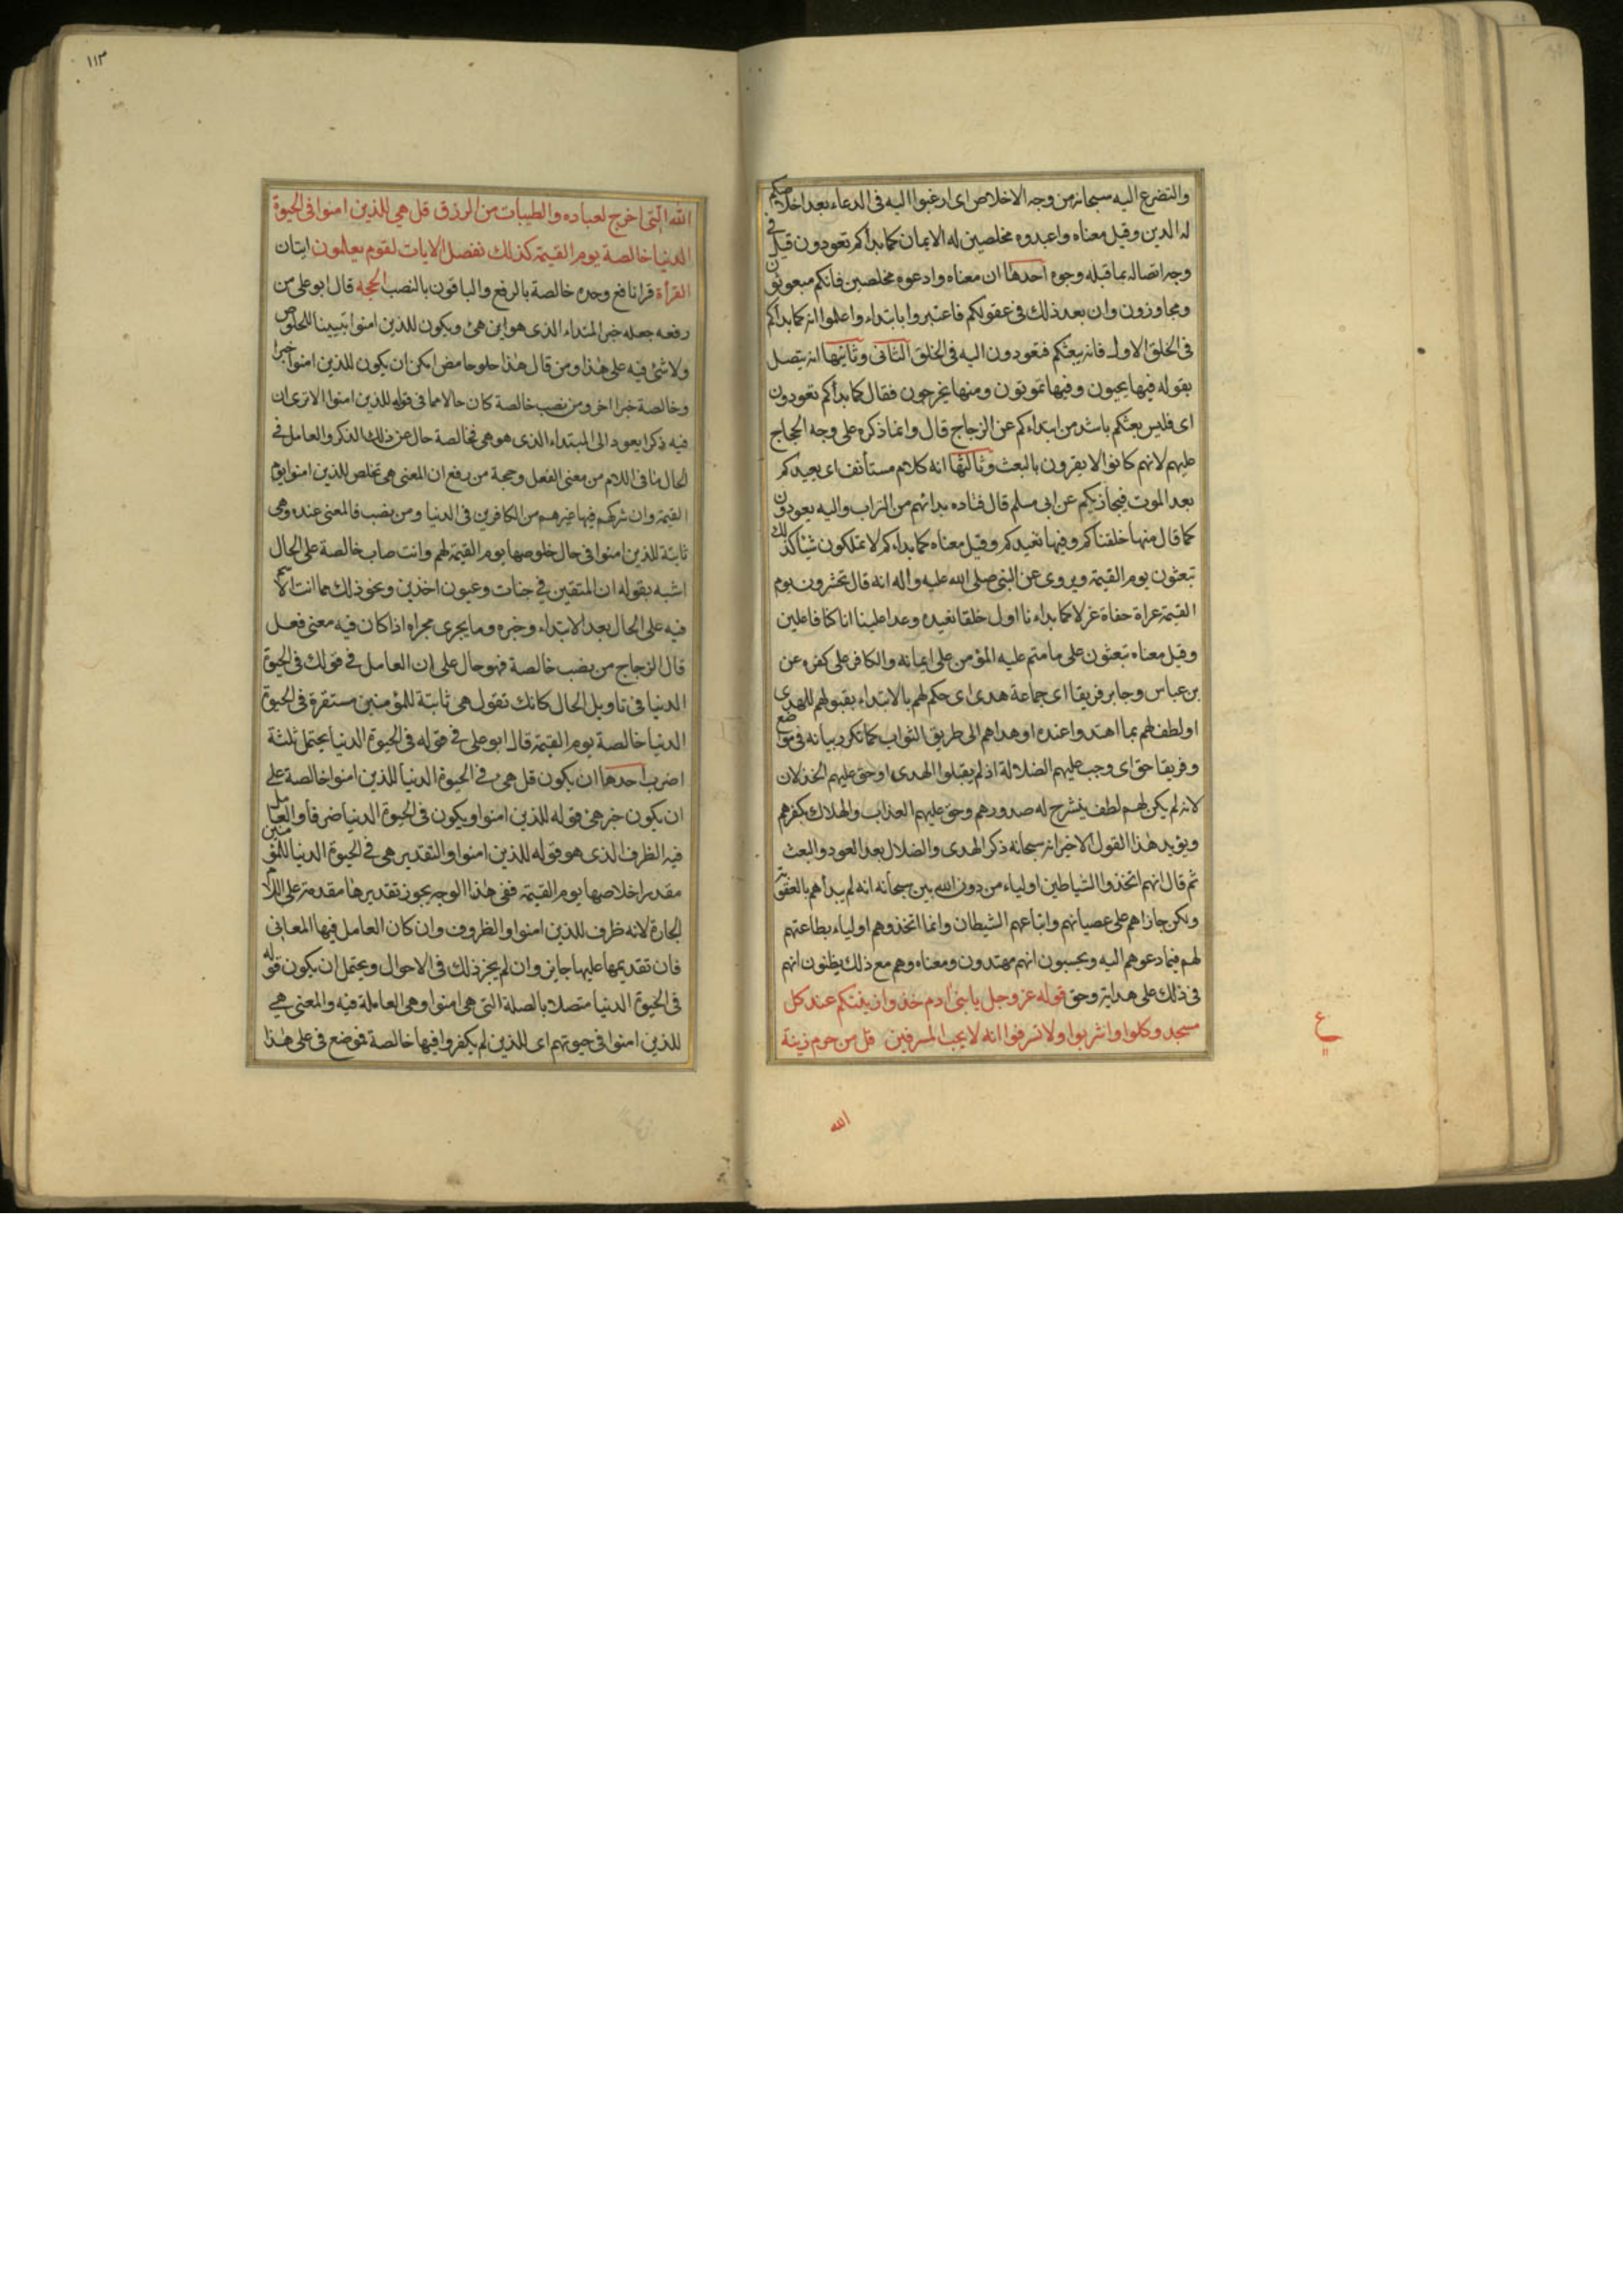 والتضرع اليه سبحانه من وجه الاخلاص اى ارغبوا اليه فى الدعاء بعد اخلاصكم
له الدين وقيل معناه واعبدوه مخلصين له الايمان كما بدأكم تعودون قيل فى
وجه اتصاله بما قبله وجوه احدها ان معناه وادعوه مخلصين فانكم مبعوثون
ومجاوزون وان بعد ذلك فى عقولكم فاعتبروا بابتداء واعلموا انه كما بدأكم
فى الخلق الاول فانه يبعثكم فتعودون اليه فى الخلق الثانى وثانيها انه يتصل
بقوله فيها يحيون وفيها تموتون ومنها يخرجون فقال كما بدأكم تعودون
اى فليس بعثكم باشد من ابتداءكم عن الزجاج قال وانما ذكره على وجه الحجاج
عليهم لانهم كانوا لا يقرون بالبعث وثالثها انه كلام مستأنف اى يعيدكم
بعد الموت فيجازيكم عن ابى مسلم قال قتاده بدائهم من التراب واليه يعودون
كما قال منها خلقناكم وفيها نعيدكم وقيل معناه كما بداءكم لا تملكون شيئا كذلك
تبعثون يوم القيمة ويروى عن النبى صلى الله عليه واله انه قال تحشرون يوم
القيمة عراة حفاة غرلا كما بداءنا اول خلق نعيده وعدا علينا انا كنا فاعلين
وقيل معناه تبعثون على ما متم عليه المؤمن على ايمانه والكافر على كفره عن
بن عباس وجابر فريقا اى جماعة هدى اى حكم لهم بالابتداء بقبولهم للهدى
او لطف لهم بما اهتدوا عنده او هداهم الى طريق الثواب كما تكرر بيانه فى مواضع
وفريقا حق اى وجب عليهم الضلالة اذ لم يقبلوا الهدى او حق عليهم الخذلان
لانه لم يكن لهم لطف ينشرح له صدورهم وحق عليهم العذاب والهلاك بكفرهم
ويؤيد هذا القول الاخير انه سبحانه ذكر الهدى والضلال بعد العود والبعث
ثم قال انهم اتخذوا الشياطين اولياء من دون الله بين سبحانه انه لم يبدأهم بالعقوبة
ولكن جازاهم على عصيانهم واتباعهم الشيطان وانما اتخذوهم اولياء بطاعتهم
لهم فيما دعوهم اليه ويحسبون انهم مهتدون ومعناه وهم مع ذلك يظنون انهم
فى ذلك على هداية وحق قوله عز وجل يا بنى ادم خذوا زينتكم عند كل
مسجد وكلوا واشربوا ولا تسرفوا انه لا يحب المسرفين قل من حرم زينة
ع
الله
١١٣
الله التى اخرج لعباده والطيبات من الرزق قل هي للذين امنوا فى الحيوة
الدنيا خالصة يوم القيمة كذلك نفصل الايات لقوم يعلمون ايتان
القرأة قرا نافع وحده خالصة بالرفع والباقون بالنصب الحجه قال ابو على من
رفعه جعله خبر المبتداء الذى هو هى ويكون للذين امنوا تبيينا للخلوص
ولا شئ فيه على هذا ومن قال هذا حلو حامض امكن ان يكون للذين امنوا خبرا
وخالصة خبرا اخر ومن نصب خالصة كان حالا مما فى قوله للذين امنوا الا ترى ان
فيه ذكرا يعود الى المبتداء الذى هو هى فخالصة حال عن ذلك الذكر والعامل فى
الحال ما فى اللام من معنى الفعل وحجة من رفع ان المعنى هى تخلص للذين امنوا يوم
القيمة وان شركهم فيها غيرهم من الكافرين فى الدنيا ومن نصب فالمعنى عنده وهى
ثابتة للذين امنوا فى حال خلوصها يوم القيمة لهم وانتصاب خالصة على الحال
اشبه بقوله ان المتقين فى جنات وعيون اخذين ونحو ذلك مما انتصب الاسم
فيه على الحال بعد الابتداء وخبره وما يجرى مجراه اذا كان فيه معنى فعل
قال الزجاج من نصب خالصة فهو حال على ان العامل فى قولك فى الحيوة
الدنيا فى تاويل الحال كانك تقول هى ثابتة للمؤمنين مستقرة فى الحيوة
الدنيا خالصة يوم القيمة قال ابو على فى قوله فى الحيوة الدنيا يحتمل ثلثة
اضرب احدها ان يكون قل هى فى الحيوة الدنيا للذين امنوا خالصة على
ان يكون خبر هى قوله للذين امنوا ويكون فى الحيوة الدنيا ضرفا والعامل
فيه الظرف الذى هو قوله للذين امنوا والتقدير هى فى الحيوة الدنيا للمؤمنين
مقدرا خلاصها يوم القيمة ففى هذا الوجه يجوز تقديرها مقدمة على اللام
الجارة لانه ظرف للذين امنوا والظروف وان كان العامل فيها المعانى
فان تقديمها عليها جايز وان لم يجز ذلك فى الاحوال ويحتمل ان يكون قوله
فى الحيوة الدنيا متصلا بالصلة التى هى امنوا وهى العاملة فيه والمعنى هى
للذين امنوا فى حيوتهم اى للذين لم يكفروا فيها خالصة فوضع فى على هذا